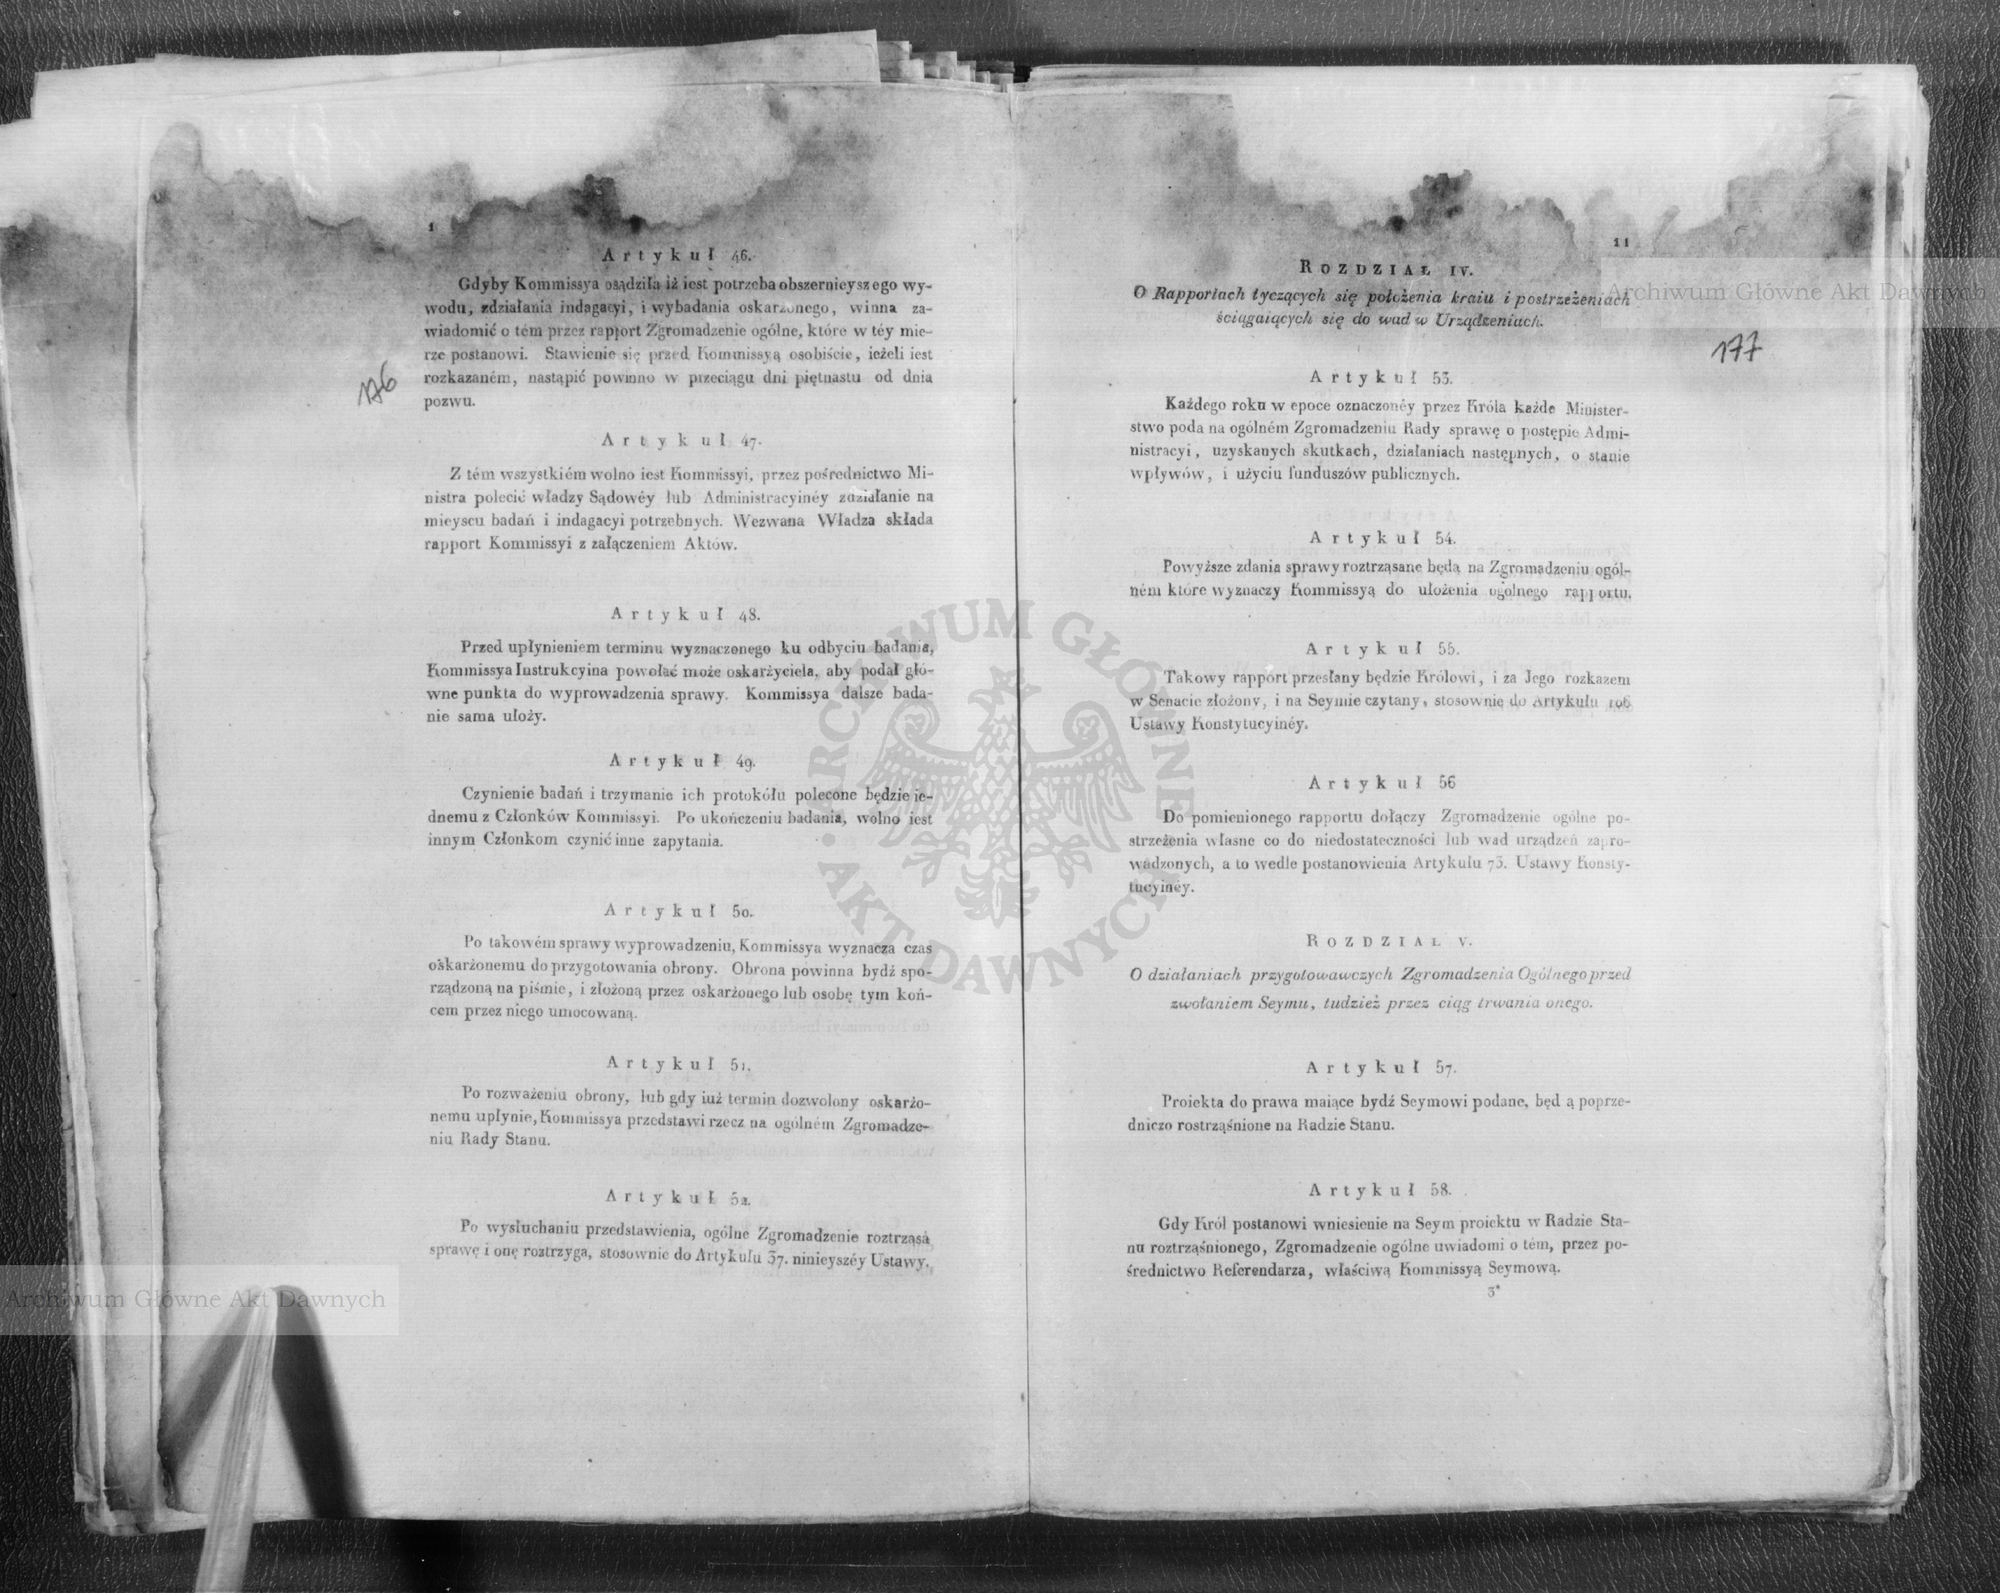 1
Artykuł 46.
Gdyby Kommissya osądziła iż iest potrzeba obszernieyszego wy-
wodu, zdziałania indagacyi, i wybadania oskarzonego, winna za-
wiadomić o tém przez rapport Zgromadzenie ogólne, które w téy mie-
rze postanowi. Stawienie się przed Kommissyą osobiście, ieżeli iest
rozkazaném, nastąpić powinno w przeciągu dni piętnastu od dnia
pozwu.
176
Artykuł 47.
Z tém wszystkiém wolno iest Kommissyi, przez pośrednictwo Mi-
nistra polecić władzy Sądowéy lub Administracyinéy zdziałanie na
mieyscu badań i indagacyi potrzebnych. Wezwana Władza składa
rapport Kommissyi z załączeniem Aktów.
Artykuł 48.
Przed upłynieniem terminu wyznaczonego ku odbyciu badania,
Kommissya Instrukcyina powołać może oskarżyciela, aby podał głó-
wne punkta do wyprowadzenia sprawy. Kommissya dalsze bada-
nie sama ułoży.
Artykuł 49.
Czynienie badań i trzymanie ich protokółu polecone będzie ie-
dnemu z Członków Kommissyi. Po ukończeniu badania, wolno iest
innym Członkom czynić inne zapytania.
Artykuł 50.
Po takowém sprawy wyprowadzeniu, Kommissya wyznacza czas
oskarżonemu do przygotowania obrony. Obrona powinna bydź spo-
rządzoną na piśmie, i złożoną przez oskarżonego lub osobę tym koń-
cem przez niego umocowaną.
Artykuł 51.
Po rozważeniu obrony, lub gdy iuż termin dozwolony oskarżo-
nemu upłynie, Kommissya przedstawi rzecz na ogólném Zgromadze-
niu Rady Stanu.
Artykuł 52.
Po wysłuchaniu przedstawienia, ogólne Zgromadzenie roztrząsa
sprawę i onę roztrzyga, stosownie do Artykułu 37. ninieyszéy Ustawy.
11
ROZDZIAŁ IV.
O Rapportach tyczących się położenia kraiu i postrzeżeniach
ściągaiących się do wad w Urządzeniach.
177
Artykuł 53.
Każdego roku w epoce oznaczonéy przez Króla każde Minister-
stwo poda na ogólném Zgromadzeniu Rady sprawę o postępie Admi-
nistracyi, uzyskanych skutkach, działaniach następnych, o stanie
wpływów, i użyciu funduszów publicznych.
Artykuł 54.
Powyższe zdania sprawy roztrząsane będą na Zgromadzeniu ogól-
ném które wyznaczy Kommissyą do ułożenia ogólnego rapportu.
Artykuł 55.
Takowy rapport przesłany będzie Królowi, i za Jego rozkazem
w Senacie złożony, i na Seymie czytany, stosownie do Artykułu 106
Ustawy Konstytucyinéy.
Artykuł 56
Do pomienionego rapportu dołączy Zgromadzenie ogólne po-
strzeżenia własne co do niedostateczności lub wad urządzeń zapro-
wadzonych, a to wedle postanowienia Artykułu 73. Ustawy Konsty-
tucyinéy.
ROZDZIAŁ V.
O działaniach przygotowawczych Zgromadzenia Ogólnego przed
zwołaniem Seymu, tudzież przez ciąg trwania onego.
Artykuł 57.
Proiekta do prawa maiące bydź Seymowi podane, będ ą poprze-
dniczo rostrząśnione na Radzie Stanu.
Artykuł 58.
Gdy Król postanowi wniesienie na Seym proiektu w Radzie Sta-
nu roztrząśnionego, Zgromadzenie ogólne uwiadomi o tém, przez po-
średnictwo Referendarza, właściwą Kommissyą Seymową.
3*
Archiwum Główne Akt Dawnych
Archiwum Główne Akt Dawnych
ARCHIWUM GŁÓWNE
AKT DAWNYCH